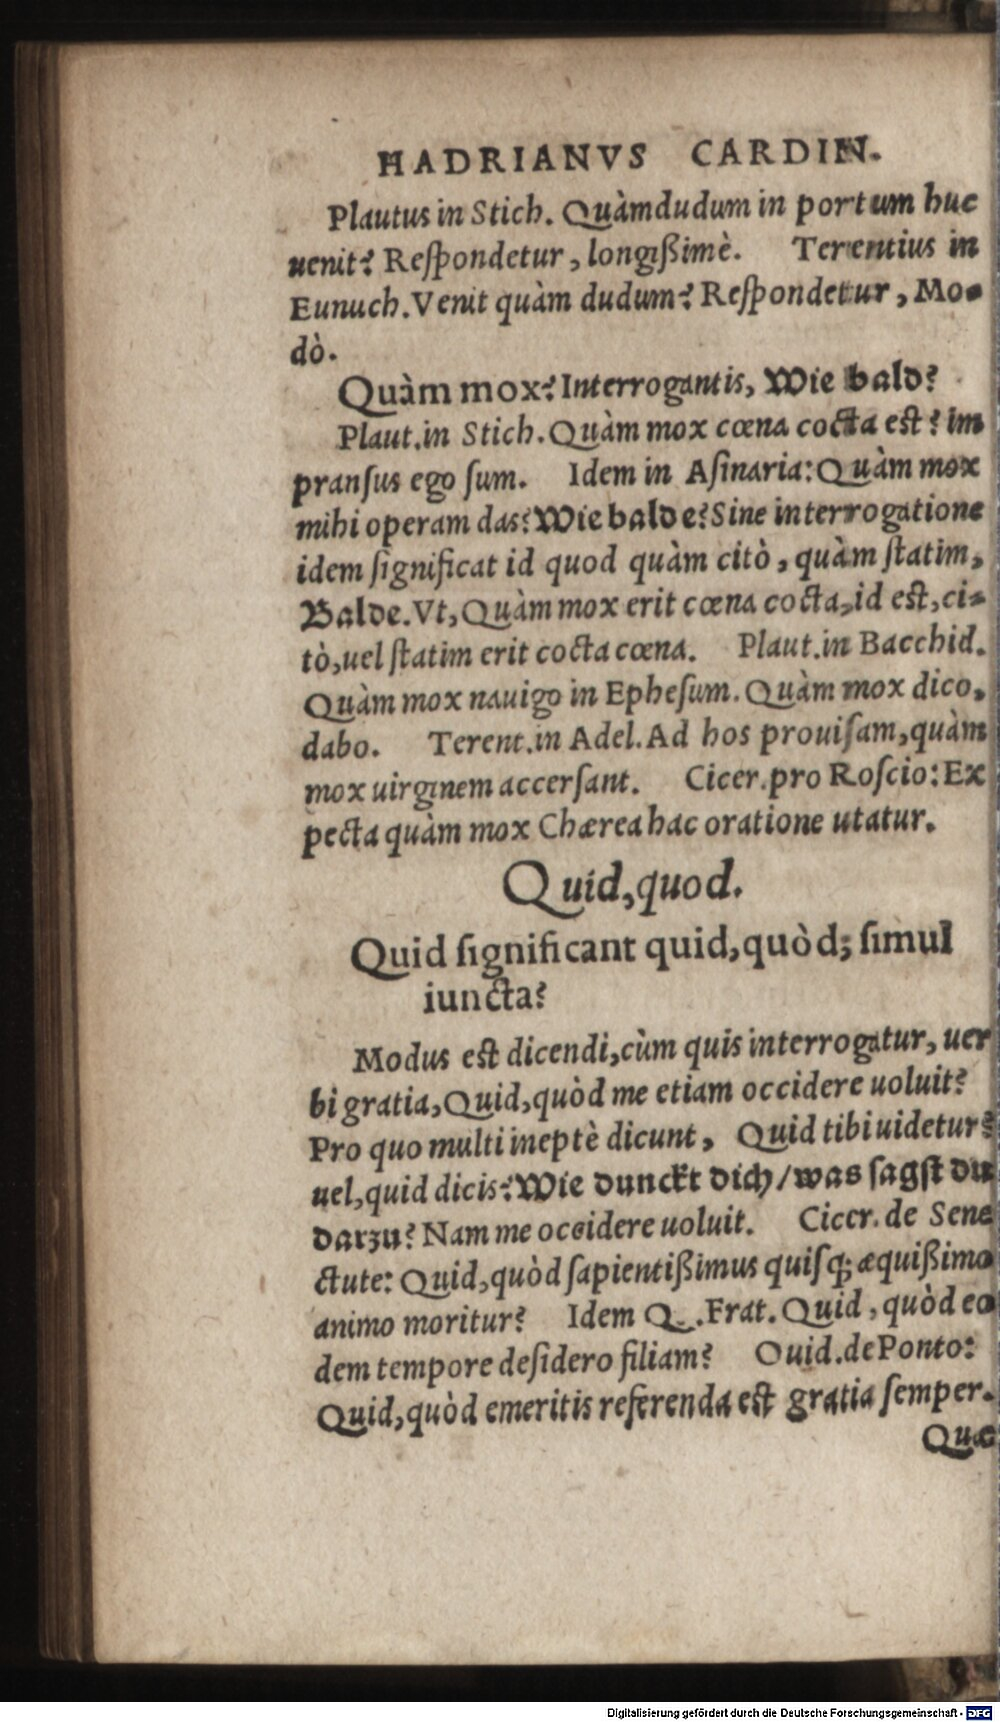 HADRIANVS CARDIN.
Plautus in Stich. Quàmdudum in portum huc
uenit? Reſpondetur, longißimè. Terentius in
Eunuch. Venit quàm dudum? Reſpondetur, Mo-
dò.
Quàm mox? Interrogantis, Wie bald?
Plaut. in Stich. Quàm mox cœna cocta est? im
pranſus ego ſum. Idem in Aſinaria: Quàm mox
mihi operam das? Wie balde? Sine interrogatione
idem ſignificat id quod quàm citò, quàm ſtatim,
Balde. Vt, Quàm mox erit cœna cocta, id est, ci-
tò, uel ſtatim erit cocta cœna. Plaut. in Bacchid.
Quàm mox nauigo in Epheſum. Quàm mox dico,
dabo. Terent. in Adel. Ad hos prouiſam, quàm
mox uirginem accerſant. Cicer. pro Roſcio: Ex
pecta quàm mox Chærea hac oratione utatur.
Quid, quod.
Quid ſignificant quid, quòd; ſimul
iuncta?
Modus est dicendi, cùm quis interrogatur, uer
bi gratia, Quid, quòd me etiam occidere uoluit?
Pro quo multi ineptè dicunt, Quid tibi uidetur?
uel, quid dicis? Wie dunckt dich/ was ſagſt du
darzu? Nam me occidere uoluit. Cicer. de Sene
ctute: Quid, quòd ſapientißimus quiſq; æquißimo
animo moritur? Idem Q. Frat. Quid, quòd eo
dem tempore deſidero filiam? Ouid. de Ponto:
Quid, quòd emeritis referenda est gratia ſemper.
Quæ
Digitalisierung gefördert durch die Deutsche Forschungsgemeinschaft - DFG